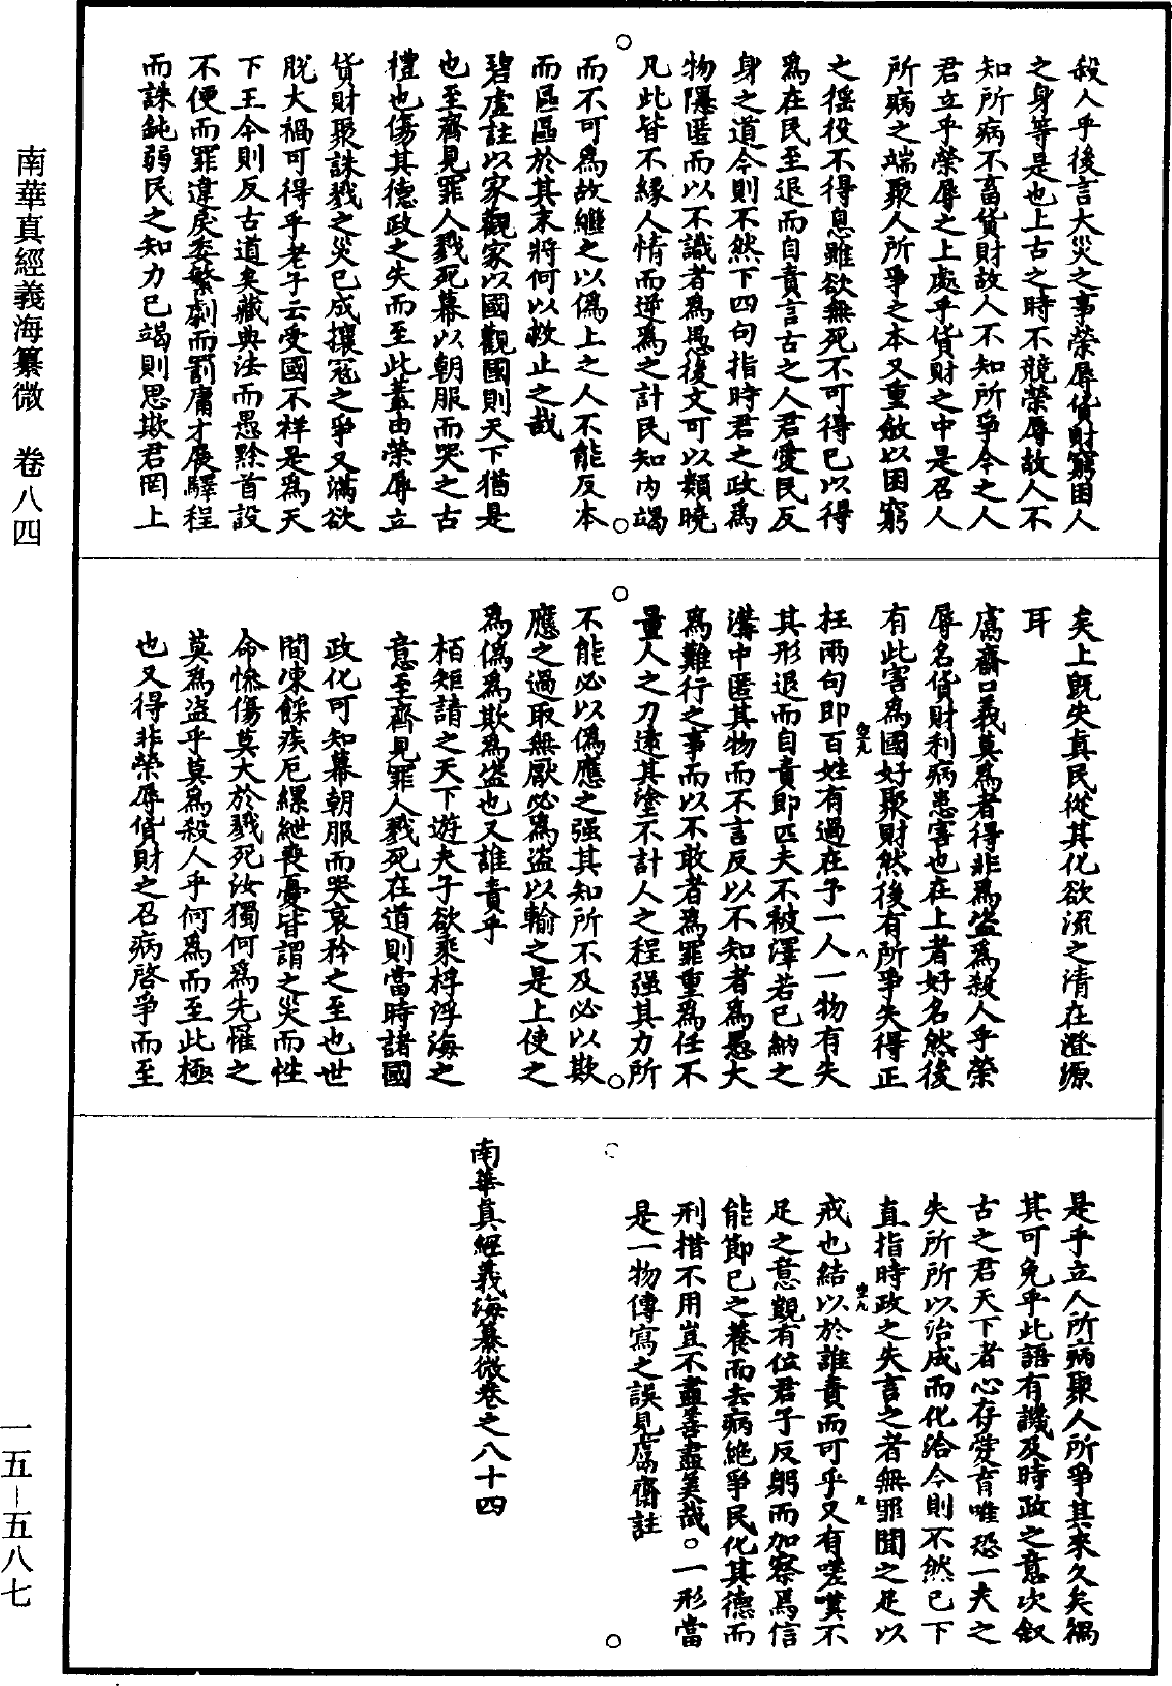 南華真經義海纂微　卷八四
一五—五八七
殺人乎後言大災之事榮辱貨財窮困人
之身等是也上古之時不競榮辱故人不
知所病不畜貨財故人不知所爭今之人
君立乎榮辱之上處乎貨財之中是召人
所病之端聚人所爭之本又重斂以困窮
之徭役不得息雖欲無死不可得已以得
爲在民至退而自責言古之人君愛民反
身之道今則不然下四句指時君之政爲
物隱匿而以不識者爲愚後文可以類曉
凡此皆不緣人情而逆爲之計民知內竭
而不可爲故繼之以僞上之人不能反本
而區區於其末將何以救止之哉
碧虛註以家觀家以國觀國則天下猶是
也至齊見罪人戮死幕以朝服而哭之古
禮也傷其德政之失而至此蓋由榮辱立
貨財聚誅戮之災已成攘寇之爭又滿欲
脫大禍可得乎老子云受國不祥是爲天
下王今則反古道矣藏典法而愚黔首設
不便而罪違戾委繁劇而罰庸才展驛程
而誅鈍弱民之知力已竭則思欺君罔上
矣上旣失真民從其化欲流之清在澄源
耳
鬳齋口義莫爲者得非爲盜爲殺人乎榮
辱名貨財利病患害也在上者好名然後
有此害爲國好聚財然後有所爭失得正
枉兩句即百姓有過在予一人一物有失
其形退而自責即匹夫不被澤若已納之
溝中匿其物而不言反以不知者爲愚大
爲難行之事而以不敢者爲罪重爲任不
量人之力遠其塗不計人之程强其力所
不能必以僞應之强其知所不及必以欺
應之過取無厭必爲盜以輸之是上使之
爲僞爲欺爲盜也又誰責乎
栢矩請之天下遊夫子欲乘桴浮海之
意至齊見罪人戮死在道則當時諸國
政化可知幕朝服而哭哀矜之至也世
間凍餒疾厄縲紲喪憂皆謂之災而性
命慘傷莫大於戮死汝獨何爲先罹之
莫爲盜乎莫爲殺人乎何爲而至此極
也又得非榮辱貨財之召病啓爭而至
是乎立人所病聚人所爭其來久矣禍
其可免乎此語有譏及時政之意次叙
古之君天下者心存愛育唯恐一夫之
失所所以治成而化洽今則不然已下
直指時政之失言之者無罪聞之足以
戒也結以於誰責而可乎又有嗟嘆不
足之意觀有位君子反躬而加察焉信
能節已之養而去病絶爭民化其德而
刑措不用豈不盡善盡美哉○一形當
是一物傳寫之誤見鬳齋註
南華真經義海纂微卷之八十四